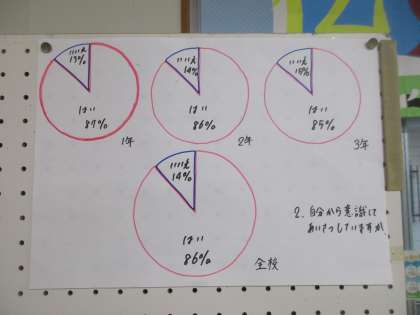 いいえ
13%
はい
87%
1年
いいえ
14%
はい
86%
2年
いいえ
15%
はい
85%
3年
いいえ
14%
はい
86%
全校
2. 自分から意識して
あいさつしていますか